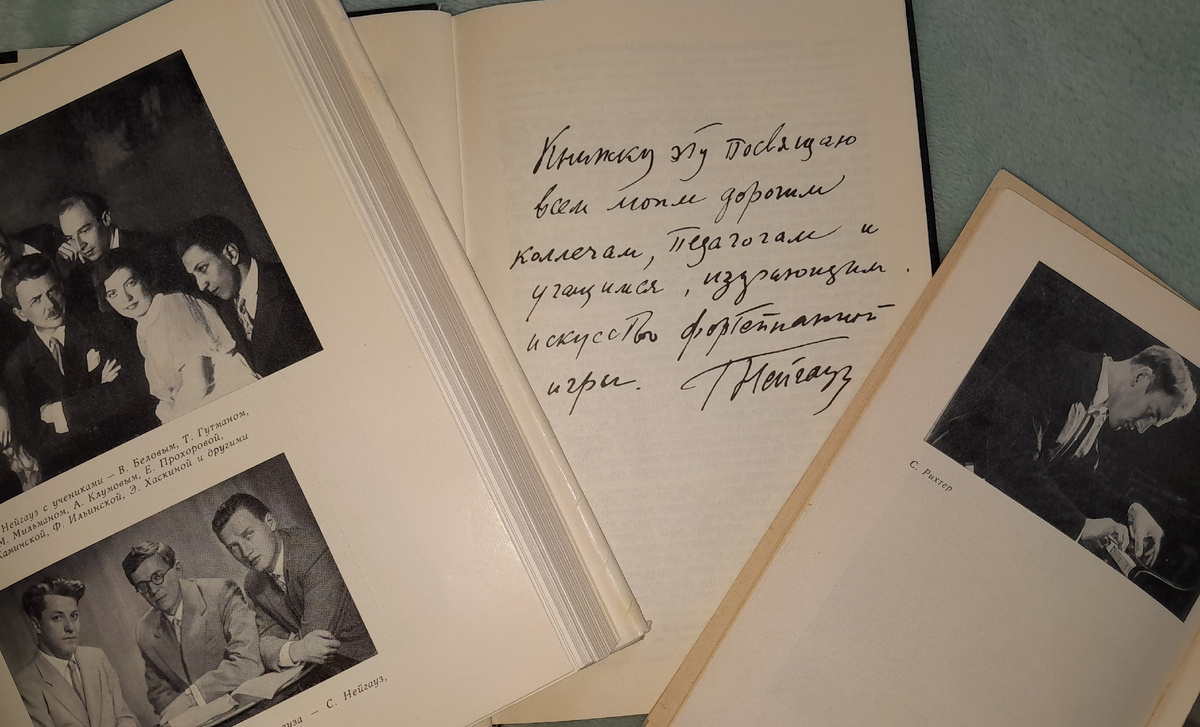 Нейгауз с учениками — В. Беловым, Т. Гутманом,
М. Мильманом, А. Клумовым, Е. Прохоровой,
Каминской, Ф. Ильинской, Э. Хаскиной и другими
— С. Нейгауз,
Книжку эту посвящаю
всем моим дорогим
коллегам, педагогам и
учащимся, изучающим
искусство фортепианной
игры. ГНейгауз
С. Рихтер